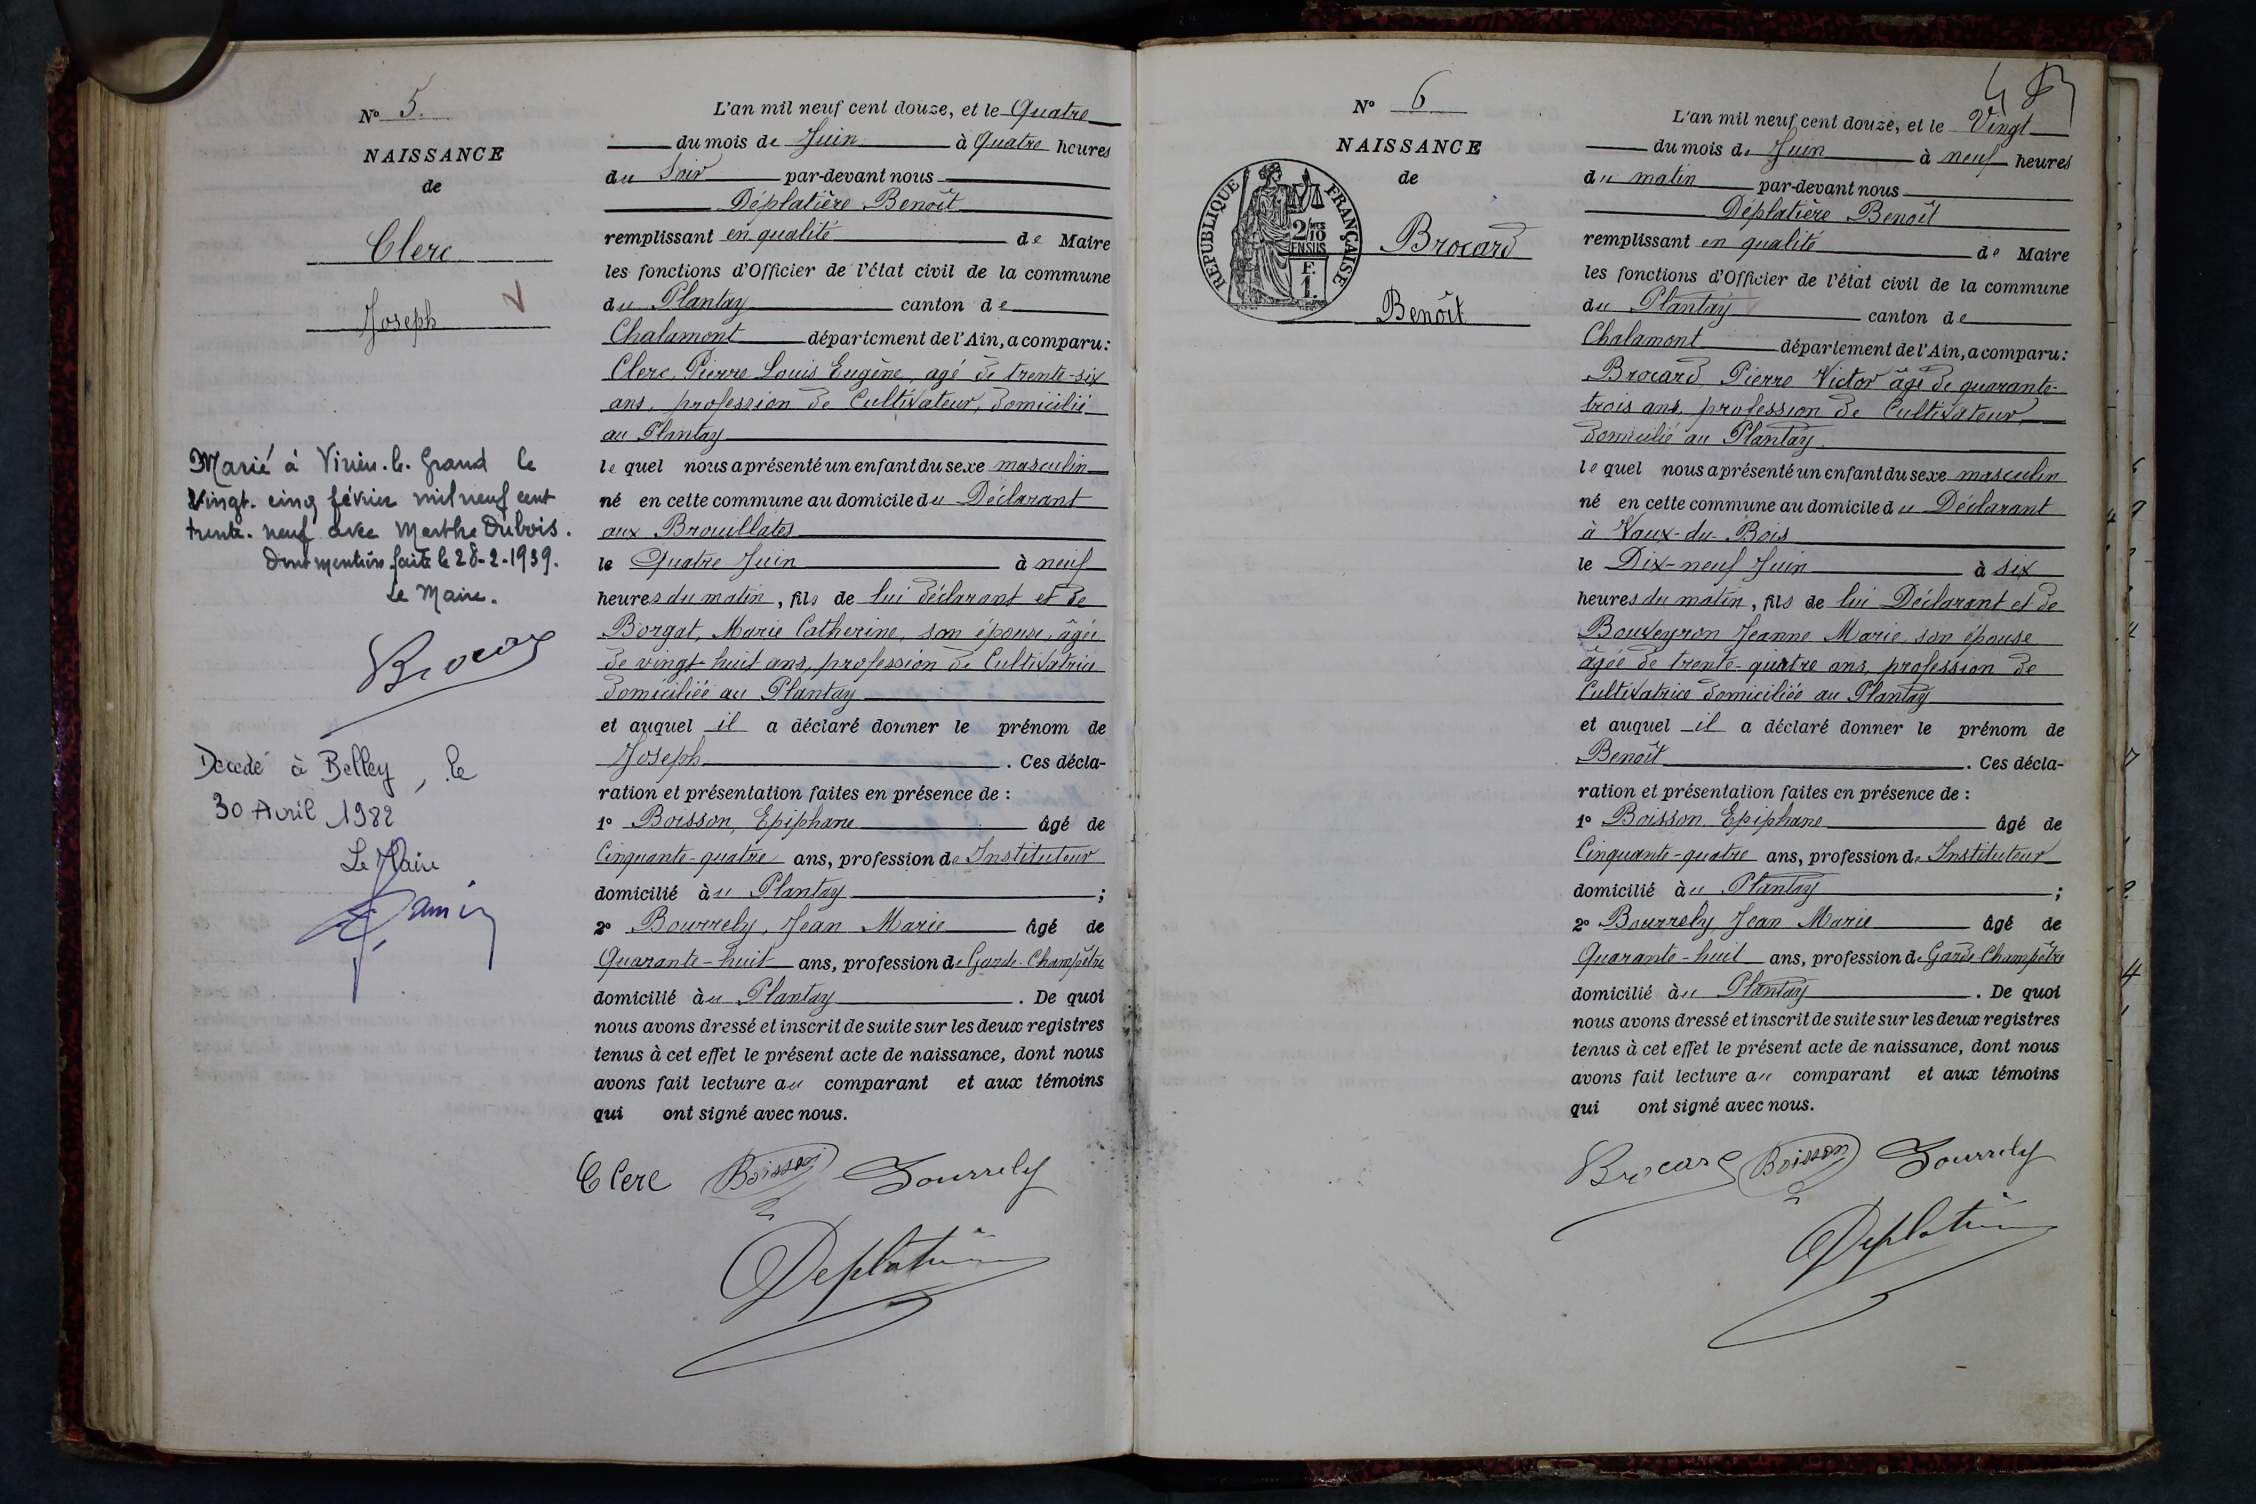 N° 5.
NAISSANCE
de
Clerc
Joseph
Marié à Virieu-le-Grand le
vingt-cinq février mil neuf cent
trente-neuf avec Marthe Dubois.
Dont mention faite le 28-2-1939.
Le Maire.
Brocard
Decedé à Belley, le
30 Avril 1982
Le Maire
L'an mil neuf cent douze, et le Quatre
du mois de Juin à Quatre heures
du Soir par-devant nous
Déplatière Benoît
remplissant en qualité de Maire
les fonctions d'Officier de l'état civil de la commune
du Plantay canton de
Chalamont département de l'Ain, a comparu:
Clerc, Pierre Louis Eugène, agé de trente-six
ans, profession de Cultivateur, domicilié
au Plantay
lequel nous a présenté un enfant du sexe masculin
né en cette commune au domicile du Déclarant
aux Brouillates
le Quatre Juin à neuf
heures du matin, fils de lui déclarant et de
Borgat, Marie Catherine, son épouse, âgée
de vingt-huit ans, profession de Cultivatrice
domiciliée au Plantay
et auquel il a déclaré donner le prénom de
Joseph. Ces décla-
ration et présentation faites en présence de :
1° Boisson, Epiphane âgé de
Cinquante-quatre ans, profession de Instituteur
domicilié au Plantay ;
2° Bourrely, Jean Marie âgé de
Quarante-huit ans, profession de Garde-Champêtre
domicilié au Plantay. De quoi
nous avons dressé et inscrit de suite sur les deux registres
tenus à cet effet le présent acte de naissance, dont nous
avons fait lecture au comparant et aux témoins
qui ont signé avec nous.
Clerc Boisson Bourrely
Deplatière
N° 6
NAISSANCE
de
RÉPUBLIQUE FRANÇAISE
2/10 MES
EN SUS
F.
1.
Brocard
Benoît
L'an mil neuf cent douze, et le Vingt
du mois de Juin à neuf heures
du matin par-devant nous
Déplatière Benoît
remplissant en qualité de Maire
les fonctions d'Officier de l'état civil de la commune
du Plantay canton de
Chalamont département de l'Ain, a comparu:
Brocard Pierre Victor âgé de quarante-
trois ans, profession de Cultivateur,
domicilié au Plantay.
lequel nous a présenté un enfant du sexe masculin
né en cette commune au domicile du Déclarant
à Vaux-du-Bois
le Dix-neuf Juin à six
heures du matin, fils de lui Déclarant et de
Bouveyron Jeanne Marie son épouse
âgée de trente-quatre ans, profession de
Cultivatrice domiciliée au Plantay
et auquel il a déclaré donner le prénom de
Benoît. Ces décla-
ration et présentation faites en présence de :
1° Boisson Epiphane âgé de
Cinquante-quatre ans, profession de Instituteur
domicilié au Plantay ;
2° Bourrely, Jean Marie âgé de
Quarante-huit ans, profession de Garde Champêtre
domicilié au Plantay. De quoi
nous avons dressé et inscrit de suite sur les deux registres
tenus à cet effet le présent acte de naissance, dont nous
avons fait lecture au comparant et aux témoins
qui ont signé avec nous.
Brocard Boisson Bourrely
Deplatière